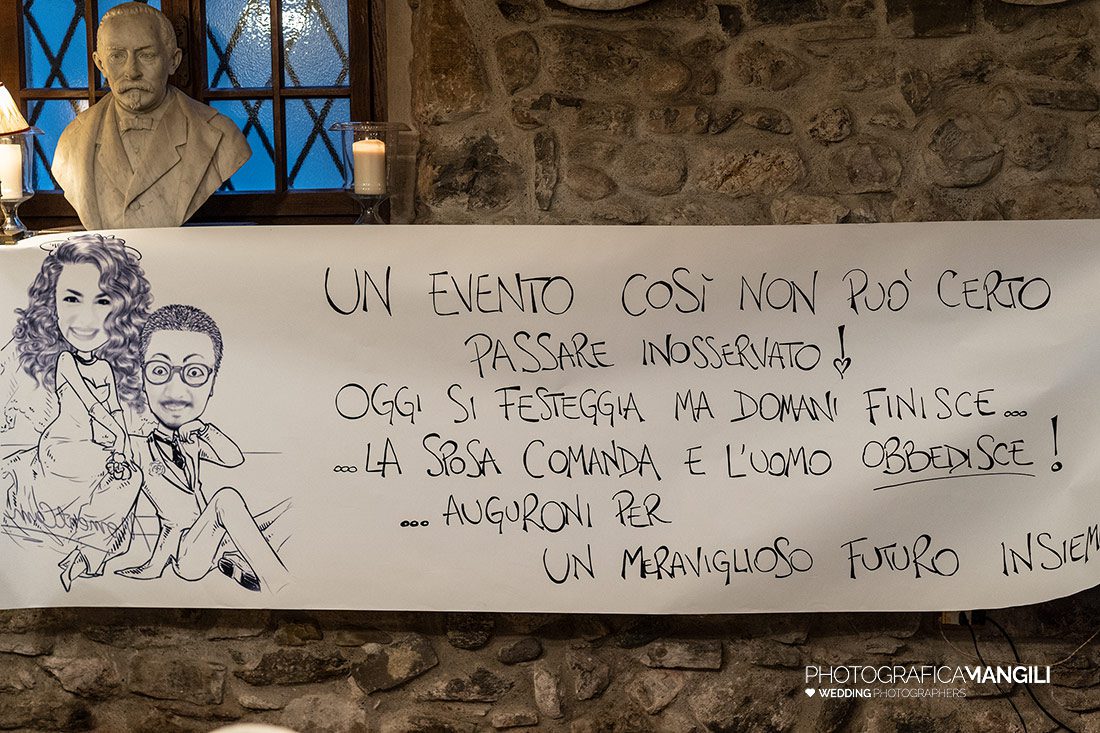 UN EVENTO COSÌ NON PUÒ CERTO
PASSARE INOSSERVATO!
OGGI SI FESTEGGIA MA DOMANI FINISCE...
...LA SPOSA COMANDA E L'UOMO OBBEDISCE!
... AUGURONI PER
UN MERAVIGLIOSO FUTURO INSIEM
PHOTOGRAFICAMANGILI
WEDDING PHOTOGRAPHERS